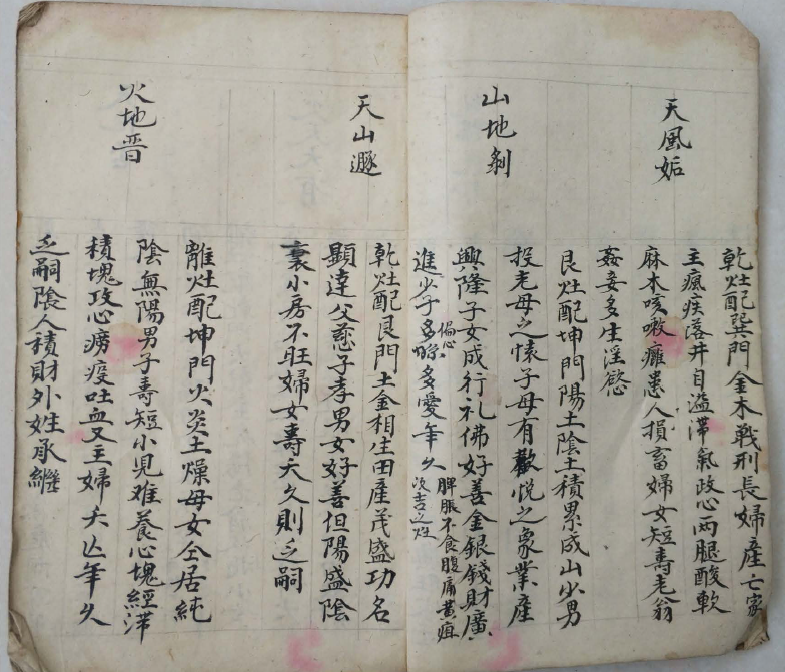 天風姤
乾灶配巽門金木戰刑長婦產亡家
主瘋疾落井自溢滯氣攻心兩腿酸軟
麻木咳嗽癱患人損畜婦女短壽老翁
姦妾多生淫慾
山地剝
艮灶配坤門陽土陰土積累成山少男
投老母之懐子母有歡悅之象業產
興隆子女成行礼佛好善金銀錢財廣
進少子多餘多愛年久
偏心
脾脹不食腹痛黄疸
次吉之灶
天山遯
乾灶配艮門土金相生田產茂盛功名
顯達父慈子孝男女好善但陽盛陰
衰小房不旺婦女壽夭久則乏嗣
火地晋
離灶配坤門火炎土燥母女仝居純
陰無陽男子壽短小児难養心塊經滞
積塊攻心癆疫吐血又主婦夭亡年久
乏嗣陰人積財外姓承繼